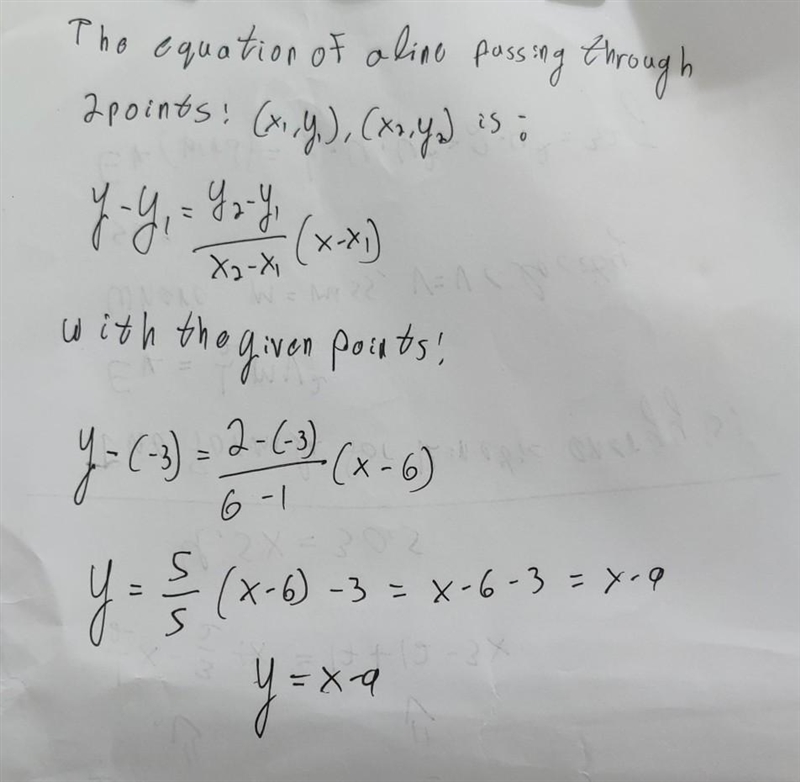 The equation of a line passing through
2points: (x₁,y₁), (x₂,y₂) is:
y-y₁ = \frac{y₂-y₁}{x₂-x₁} (x-x₁)
with the given points:
y-(-3) = \frac{2-(-3)}{6-1} (x-6)
y = \frac{5}{5} (x-6) -3 = x-6-3 = x-9
y = x-9